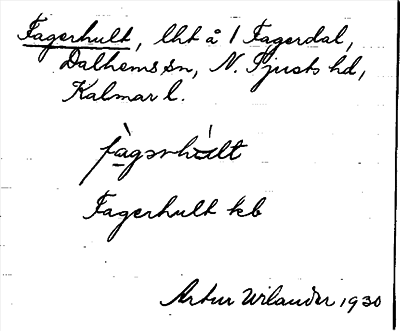 Fagerhult, lht å 1 Fagerdal,
Dalhems sn, N. Tjusts hd,
Kalmar l.
fàgərhúlt
Fagerhult kb
Artur Wilander 1930